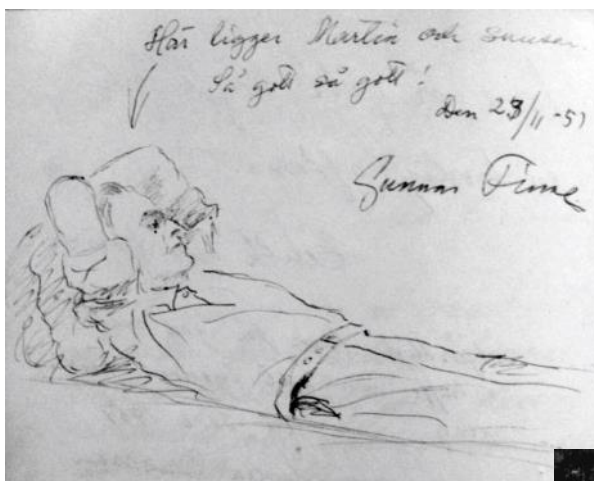 Här ligger Martin och snusar.
Så gott så gott!
Den 23/11 -51
Gunnar Finne